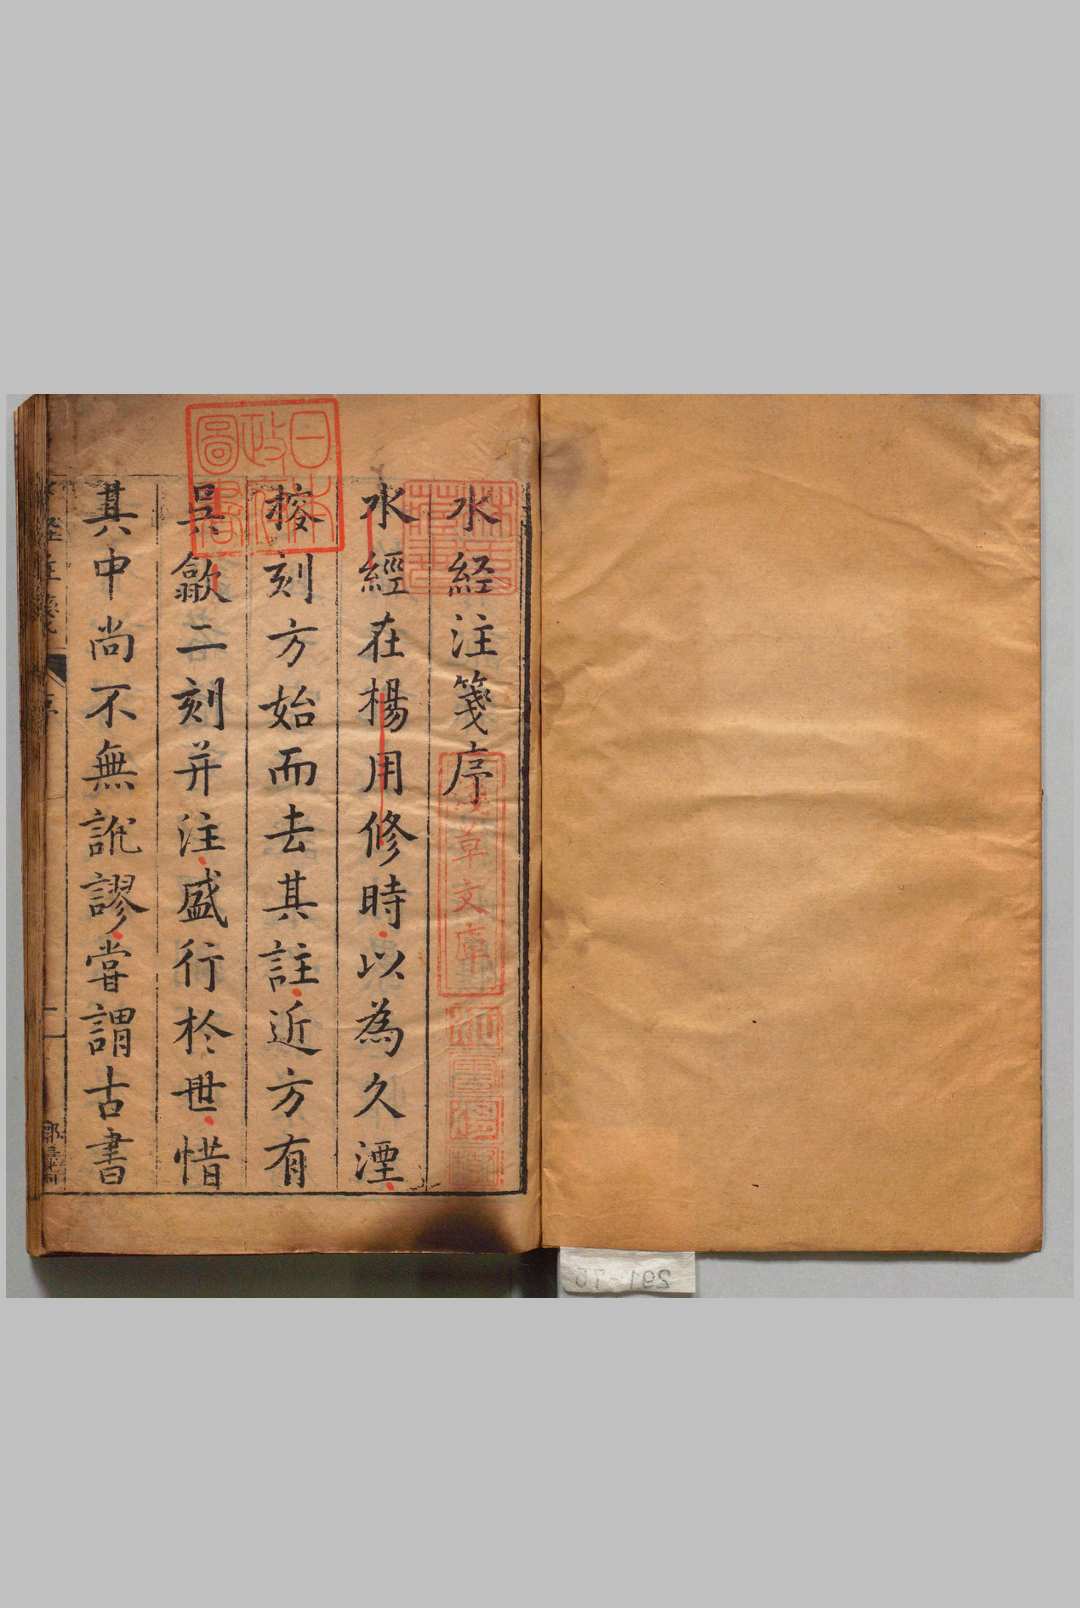 水経注箋序
水經在楊用修時以為久湮
榜刻方始而去其註近方有
吳歙二刻并注盛行於世惜
其中尚不無訛謬嘗謂古書
日本
政府
圖書
草文庫